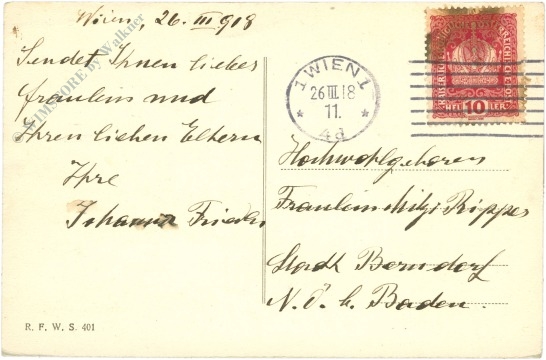 Wien, 26. III 918
Sendet Ihnen liebes
Fräulein und
Ihren lieben Eltern
Ihre
Johanna
by Walkner
1 WIEN 1
26.III.18
11.
* 4d *
10
HELLER
Hochwohlgeboren
Fräulein Mitzi Rippes
Stadt Berndorf
N. Ö. b. Baden.
R. F. W. S. 401